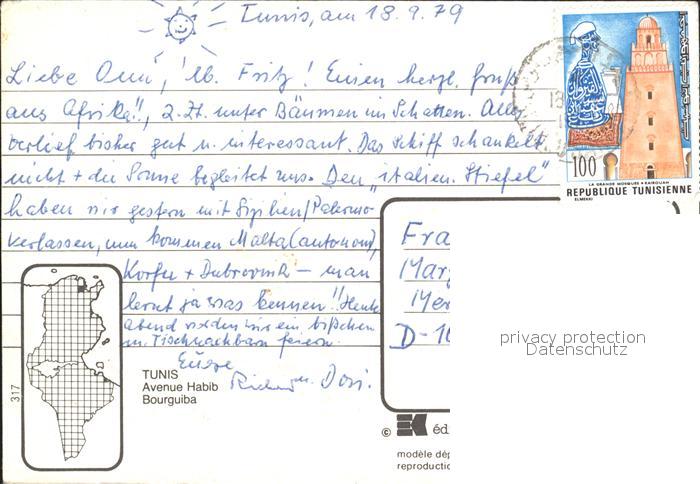 Tunis, am 18.9.79
Liebe Omi, lb. Fritz! Einen herzl. Gruß
aus Afrika!!, z.Zt. unter Bäumen im Schatten. Alles
verlief bisher gut u. interessant. Das Schiff schaukelt
nicht + die Sonne begleitet uns. Den „italien. Stiefel"
haben wir gestern mit Sizilien/Palermo
verlassen, nun kommen Malta (autonom),
Korfu + Dubrovnik – man
lernt ja was kennen!! Heute
abend werden wir ein bißchen
m. Tischnachbarn feiern.
Eure
Richard u. Dori.
100
LA GRANDE MOSQUEE • KAIROUAN
REPUBLIQUE TUNISIENNE
ELMEKKI
Fra
Mar
Mer
D-10
privacy protection
Datenschutz
317
TUNIS
Avenue Habib
Bourguiba
© EK éd
modèle dép
reproductio